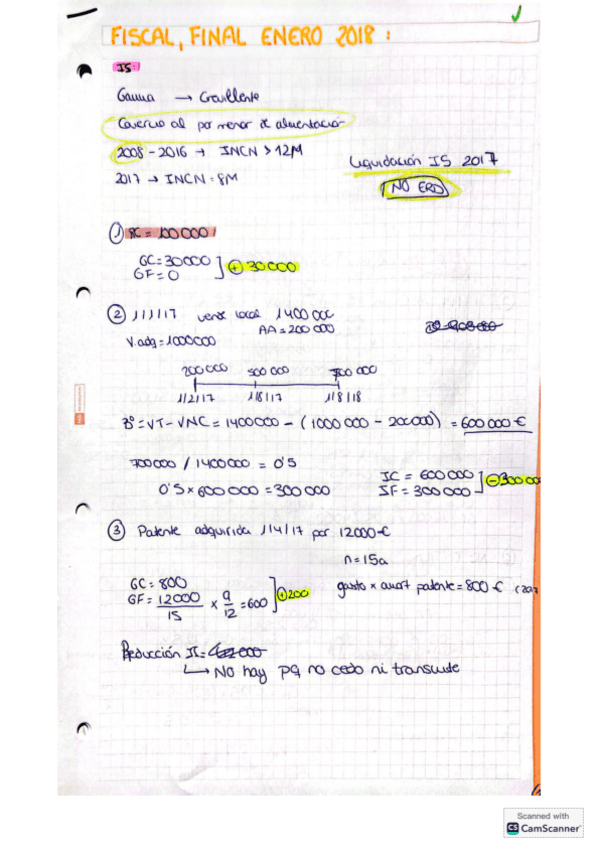 FISCAL, FINAL ENERO 2018 :
IS:
Gamma → Crevillente
Comercio al por menor de alimentación
2008 - 2016 → INCN > 12M
2017 → INCN = 8M
Liquidación IS 2017
NO ERD
① RC = 100 000
GC = 30000
GF = 0
⊕ 30 000
② 1/1/17 vende local 1400 000
AA = 200 000
V.adq = 1000000
200 000 500 000 700 000
1/2/17 1/8/17 1/8/18
Bº = VT - VNC = 1400000 - (1000 000 - 200000) = 600 000 €
700000 / 1400000 = 0'5
0'5 x 600 000 = 300000
IC = 600000
IF = 300000
⊖ 300 00
③ Patente adquirida 1/4/17 por 12000€
n = 15a
GC = 800
GF = 12000 / 15 x 9 / 12 = 600
⊕ 200
gasto x amort patente = 800 € (201
Reducción II =
↳ No hay pq no cedo ni transmite
Scanned with
CS CamScanner